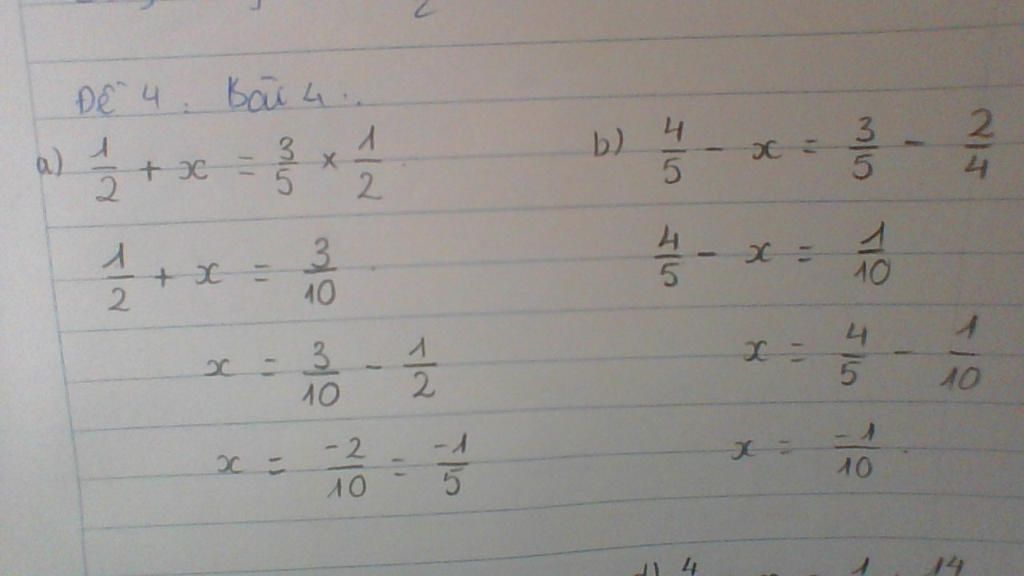 Đề 4. Bài 4.
a) 1/2 + x = 3/5 × 1/2
1/2 + x = 3/10
x = 3/10 - 1/2
x = -2/10 = -1/5
b) 4/5 - x = 3/5 - 2/4
4/5 - x = 1/10
x = 4/5 - 1/10
x = -1/10